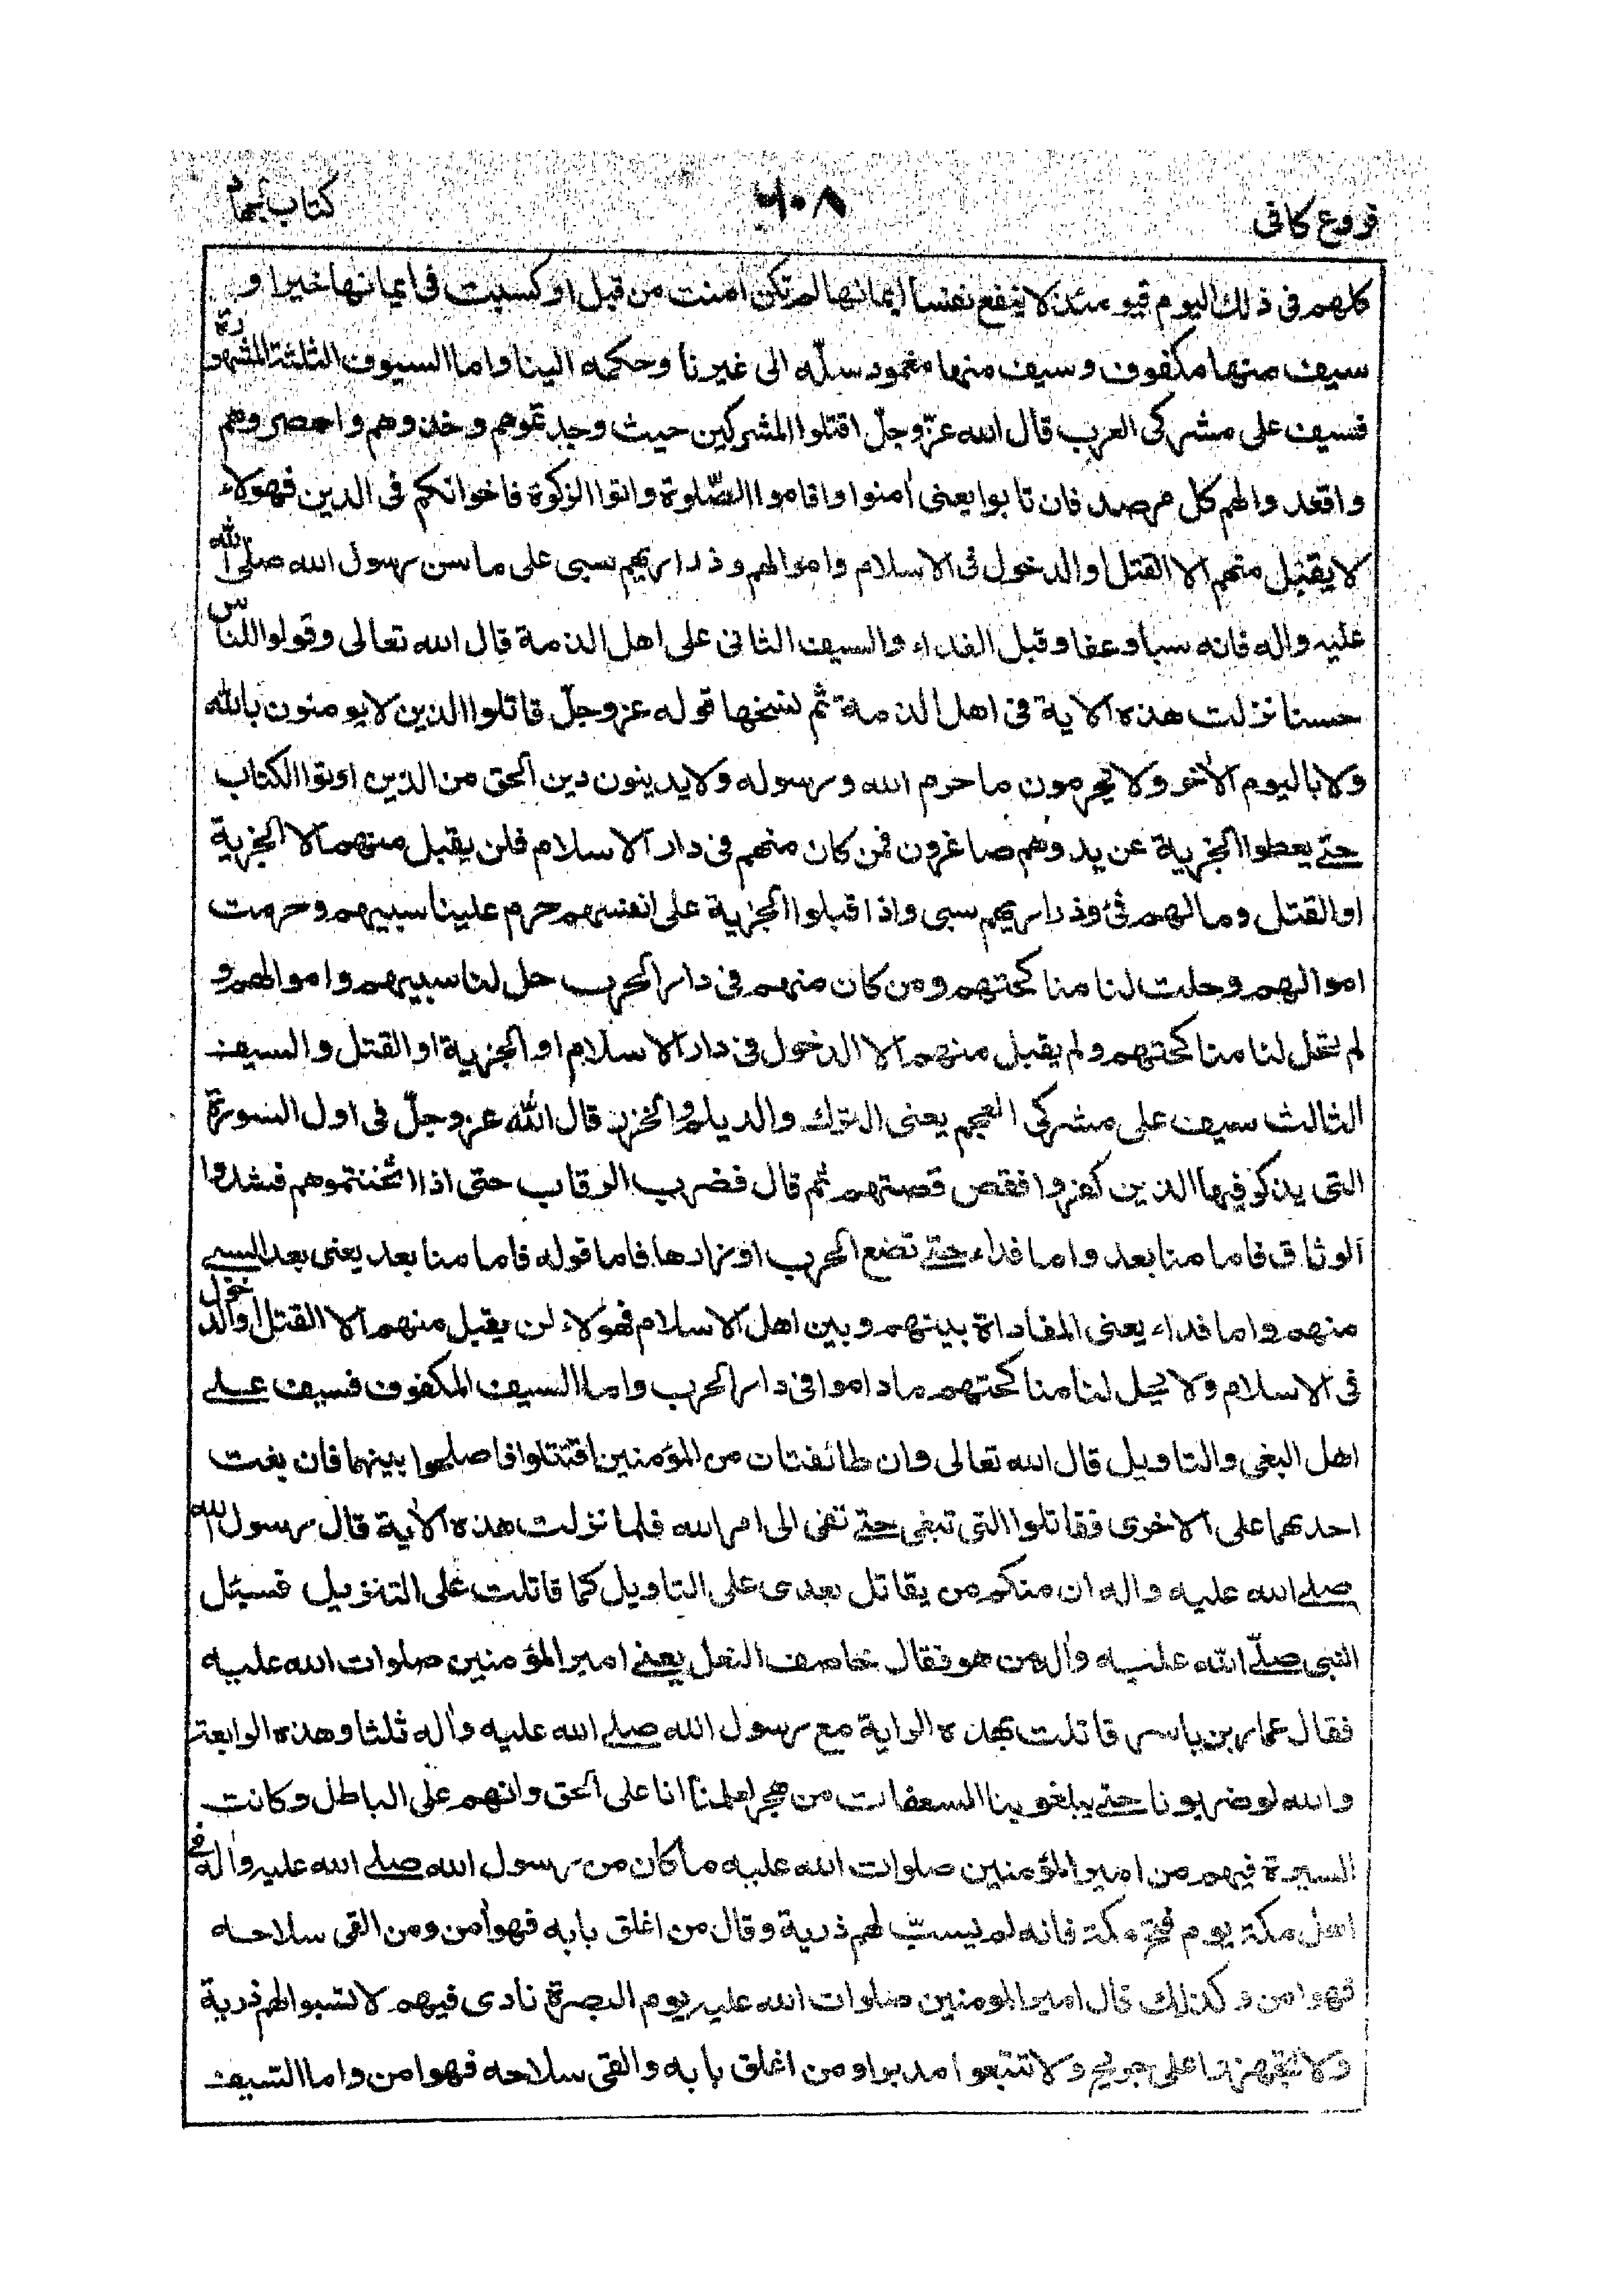 فروع كافى
٦٠٨
كتاب جهاد
كلهم فى ذلك اليوم فيومئذ لا ينفع نفسا ايمانها لم تكن امنت من قبل او كسبت فى ايمانها خيرا و
سيف منها مكفوف و سيف منها مغمود سلّه الى غيرنا و حكمه الينا و اما السيوف الثلثة المشهورة
فسيف على مشركى العرب قال الله عزّ وجلّ اقتلوا المشركين حيث وجدتموهم وخذوهم واحصروهم
واقعدوا لهم كل مرصد فان تابوا يعنى أمنوا واقاموا الصّلوة واتوا الزكوة فاخوانكم فى الدين فهولاء
لا يقبل منهم الا القتل او الدخول فى الاسلام واموالهم وذراريهم سبى على ما سن رسول الله صلّى الله
عليه واله فانه سبا وعفا وقبل الفداء والسيف الثانى على اهل الذمة قال الله تعالى وقولوا للناس
حسنا نزلت هذه الاية فى اهل الذمة ثم نسخها قوله عز وجلّ قاتلوا الذين لا يومنون بالله
ولا باليوم الأخر ولا يحرمون ما حرم الله ورسوله ولا يدينون دين الحق من الذين اوتوا الكتاب
حتى يعطوا الجزية عن يد وهم صاغرون فمن كان منهم فى دار الاسلام فلن يقبل منهم الا الجزية
او القتل ومالهم فئ وذراريهم سبى واذا قبلوا الجزية على انفسهم حرم علينا سبيهم وحرمت
اموالهم وحلت لنا مناكحتهم ومن كان منهم فى دار الحرب حل لنا سبيهم واموالهم و
لم تحل لنا مناكحتهم ولم يقبل منهم الا الدخول فى دار الاسلام او الجزية او القتل والسيف
الثالث سيف على مشركى العجم يعنى الترك والديلم والخزر قال الله عز وجلّ فى اول السورة
التى يذكر فيها الذين كفروا فقص قصتهم ثم قال فضرب الرقاب حتى اذا اثخنتموهم فشدوا
الوثاق فاما منا بعد واما فداء حتى تضع الحرب اوزارها فاما قوله فاما منا بعد يعنى بعد السبى
منهم واما فداء يعنى المفاداة بينهم وبين اهل الاسلام فهؤلاء لن يقبل منهم الا القتل او الدخول
فى الاسلام ولا يحل لنا مناكحتهم ما داموا فى دار الحرب واما السيف المكفوف فسيف على
اهل البغى والتاويل قال الله تعالى وان طائفتان من المؤمنين اقتتلوا فاصلحوا بينهما فان بغت
احديهما على الاخرى فقاتلوا التى تبغى حتى تفئ الى امر الله فلما نزلت هذه الأية قال رسول الله
صلى الله عليه واله ان منكم من يقاتل بعدى على التاويل كما قاتلت على التنزيل فسئل
النبى صلّى الله عليه وأله من هو فقال خاصف النعل يعنى امير المؤمنين صلوات الله عليه
فقال عمار بن ياسر قاتلت بهذه الراية مع رسول الله صلى الله عليه وأله ثلثا وهذه الرابعة
والله لو ضربونا حتى يبلغوا بنا السعفات من هجر لعلمنا انا على الحق وانهم على الباطل وكانت
السيرة فيهم من امير المؤمنين صلوات الله عليه ما كان من رسول الله صلى الله عليه وأله فى
اهل مكة يوم فتح مكة فانه لم يسبّ لهم ذرية وقال من اغلق بابه فهو أمن ومن القى سلاحه
فهو امن وكذلك قال امير المومنين صلوات الله عليه يوم البصرة نادى فيهم لا تسبوا لهم ذرية
ولا تجهزوا على جريح ولا تتبعوا مدبرا ومن اغلق بابه والقى سلاحه فهو امن واما السّيف